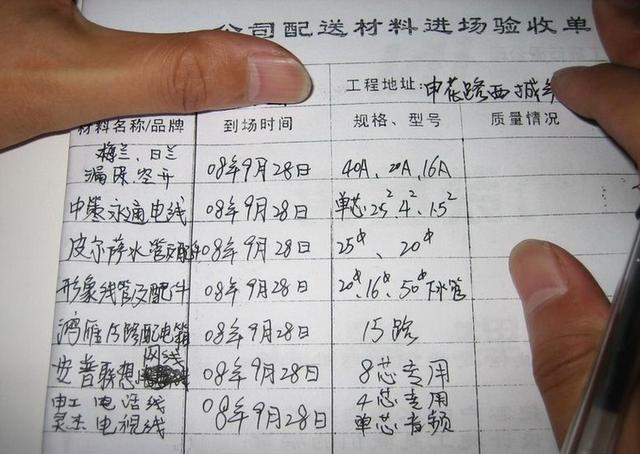 公司配送材料进场验收单
工程地址:申花路西城
材料名称/品牌 到场时间 规格、型号 质量情况
梅兰、日兰
漏保、空开 08年9月28日 40A、20A、16A
中策永通电线 08年9月28日 单芯2.5² 4² 1.5²
皮尔萨水管及配件 08年9月28日 25φ、20φ
形象线管及配件 08年9月28日 20φ、16φ、50φ下水管
鸿雁15路配电箱 08年9月28日 15路
网线
安普联想 08年9月28日 8芯专用
电工电话线 4芯专用
08年9月28日
电视线 单芯音频